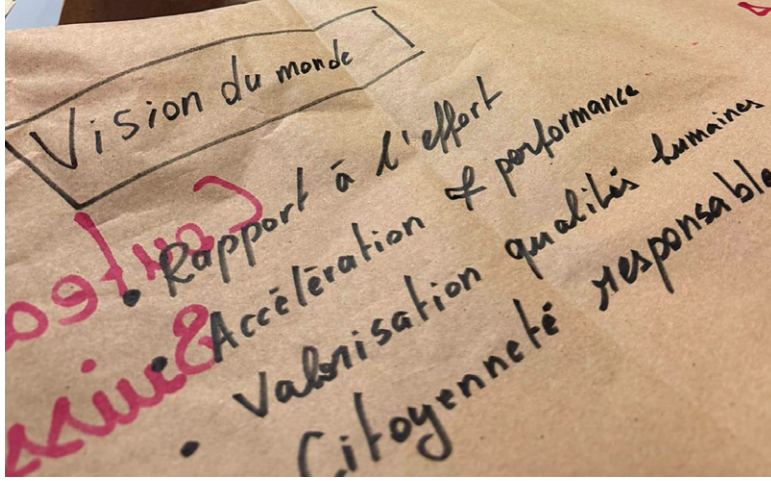 Vision du monde
• Rapport à l'effort
• Accélération & performance
• Valorisation qualités humaines
Citoyenneté responsable